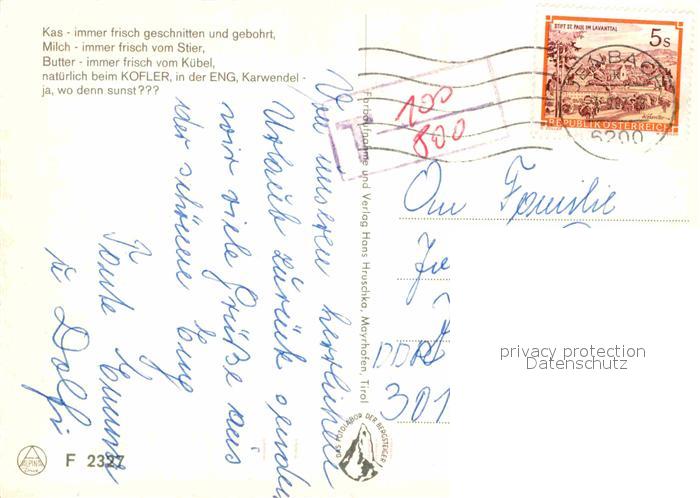 Kas - immer frisch geschnitten und gebohrt,
Milch - immer frisch vom Stier,
Butter - immer frisch vom Kübel,
natürlich beim KOFLER, in der ENG, Karwendel -
ja, wo denn sunst???
Von unseren herrlichen
Urlaub zurück senden
wir viele Grüße aus
der schönen Eng
Tante Emma
u Dolfi
F 2327
ALPINA
Farbaufnahme und Verlag Hans Hruschka, Mayrhofen, Tirol
DAS FOTOLABOR DER BERGSTEIGER
T
100
800
STIFT ST. PAUL IM LAVANTTAL
5s
REPUBLIK ÖSTERREICH
JENBACH
6200
An Familie
DDR
301
privacy protection
Datenschutz